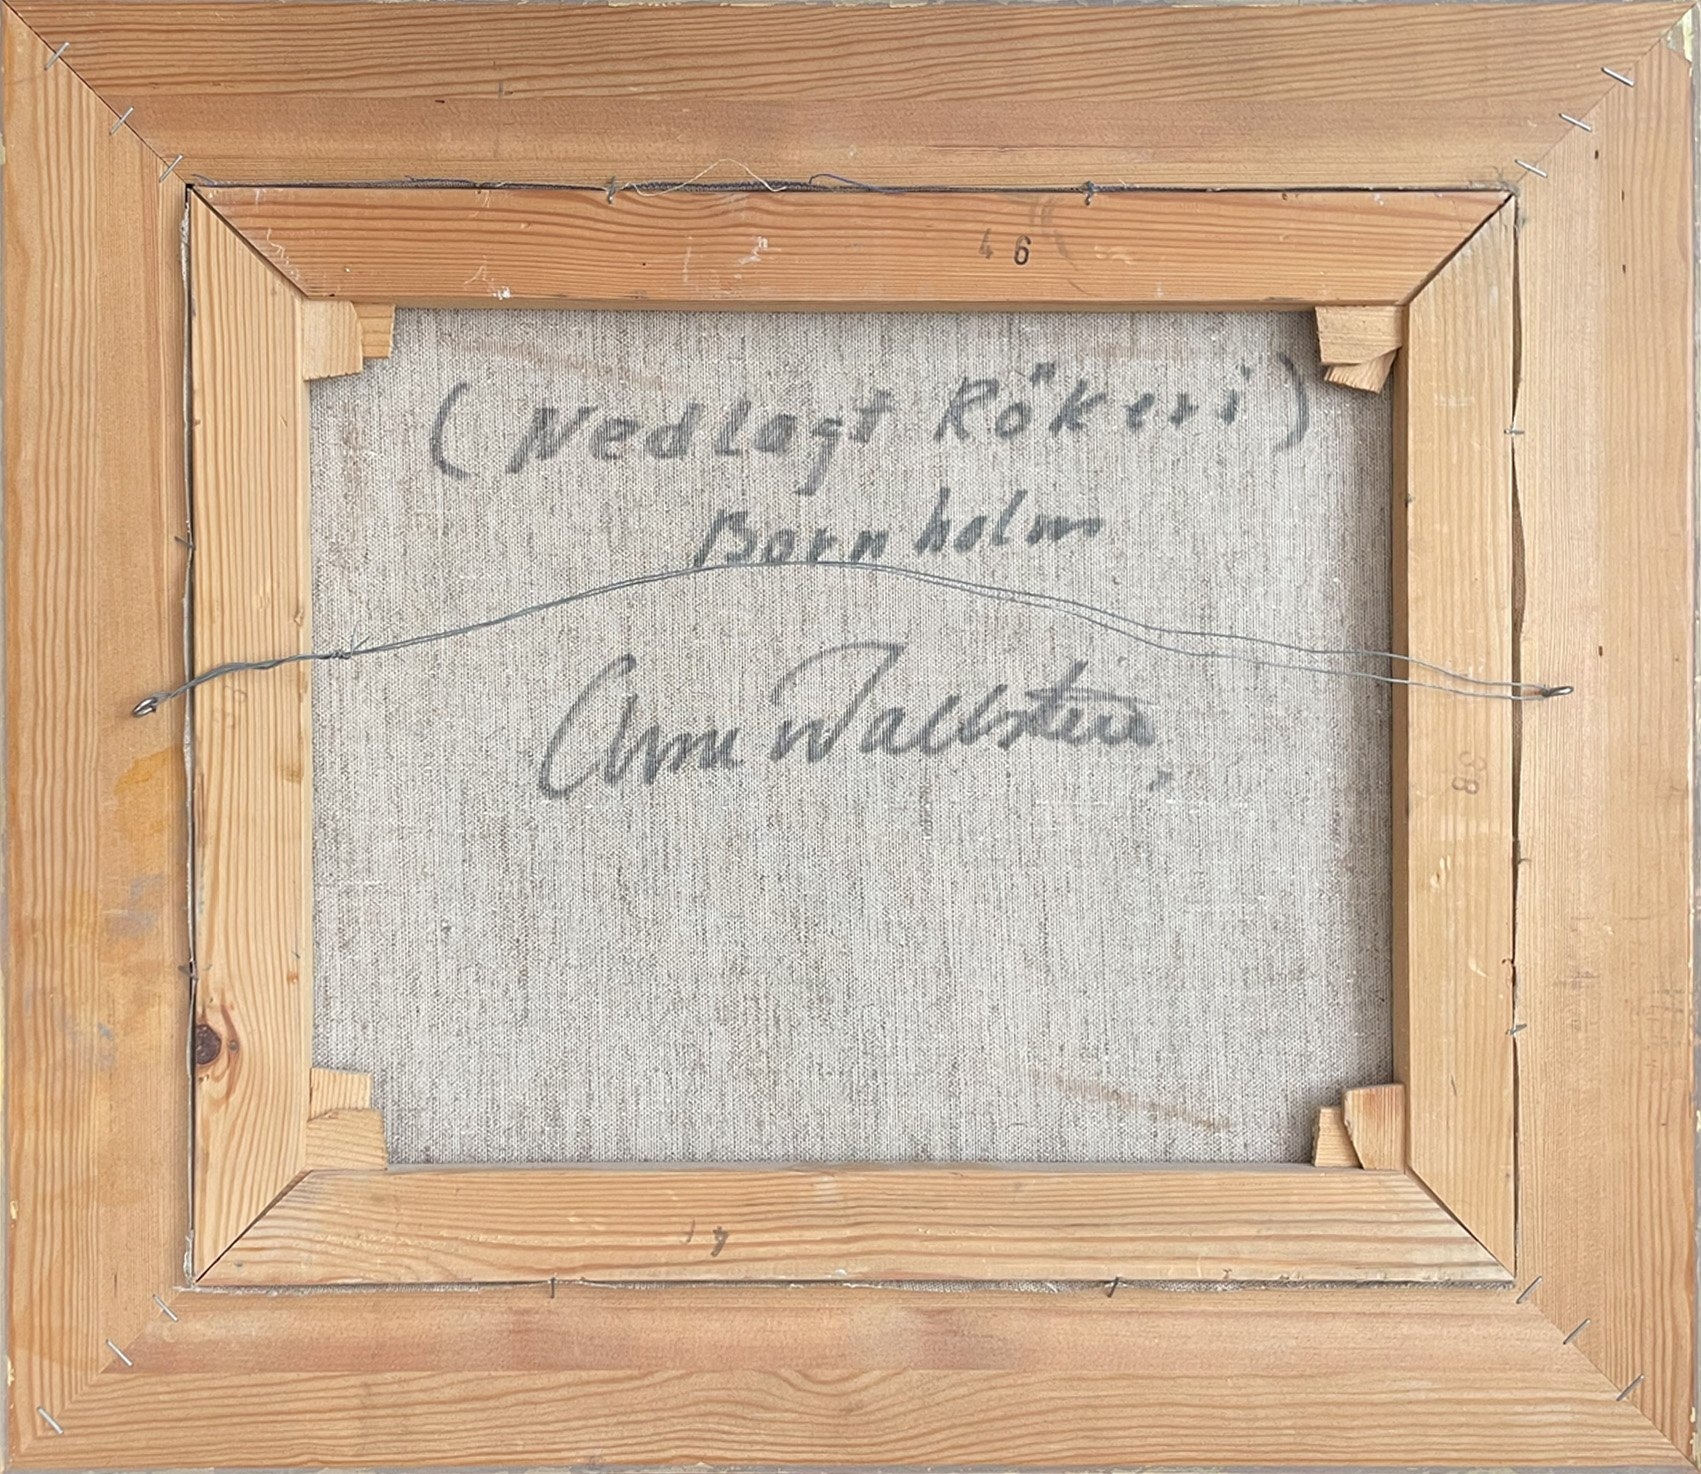 46
(Nedlagt Rökeri)
Bornholm
Arne Wallstein
38